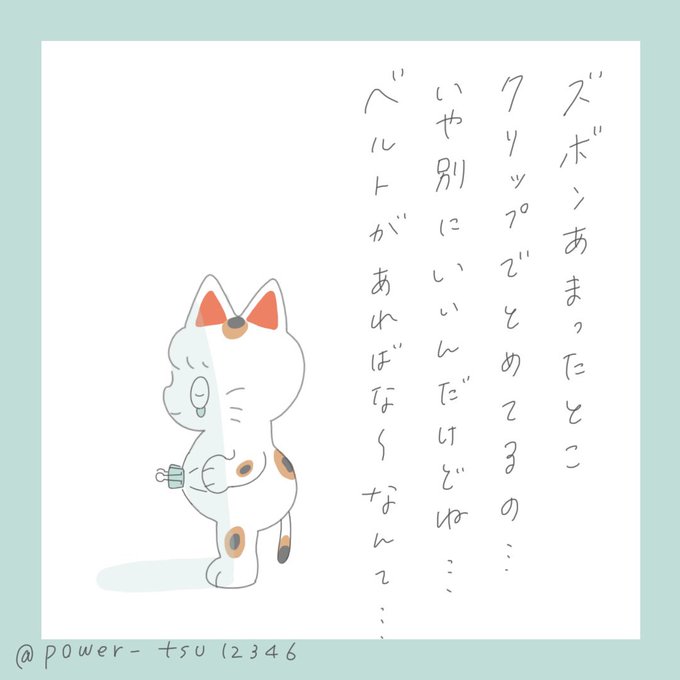 ズボンあまったとこ
クリップでとめてるの…
いや別にいいんだけどね…
ベルトがあればな〜なんて…
@power-tsu12346